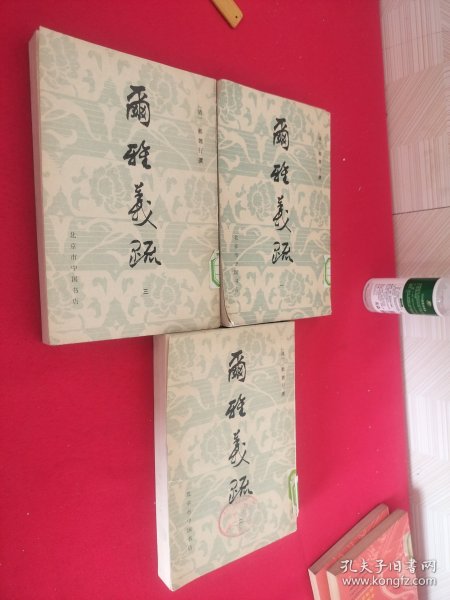 爾雅義疏
〔清〕郝懿行撰
北京市中国书店
三
爾雅義疏
〔清〕郝懿行撰
北京市中国书店
一
爾雅義疏
〔清〕郝懿行撰
北京市中国书店
二
孔夫子旧书网
www.kongfz.com